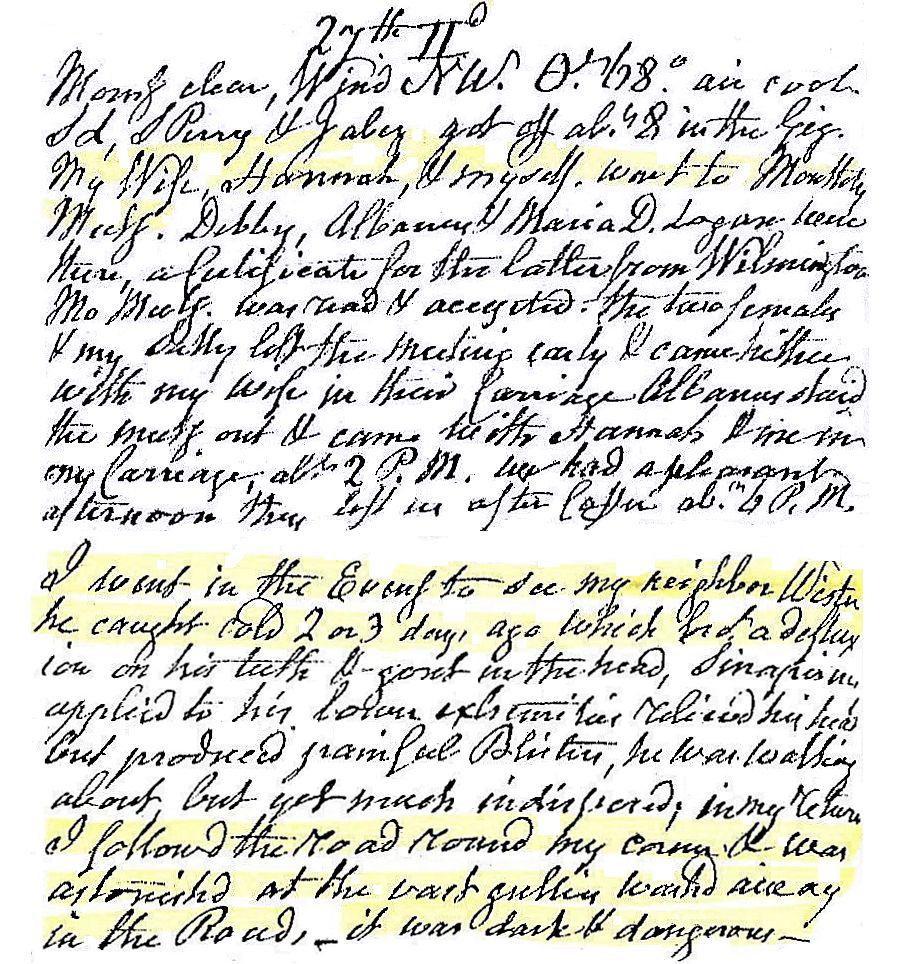 27th II d
Morng clear, Wind NW. 78° air cool
Sd, S Perry & Jabez got off abt 8 in the Gig.
My Wife, Hannah, & myself. went to Monthly
Meetg. Debby, Albanus & Maria D. Logan were
there, a Certificate for the latter from Wilmington
Mo Meetg. was read & accepted. the two females
& my Sally left the meeting early & came hither
with my wife in their Carriage Albanus staid
the meetg out & came with Hannah & me in
my Carriage, abt 2 P.M. we had a pleasant
afternoon they left us after Coffee abt 6 P.M.
I went in the Eveng to see my neighbor Wister
he caught cold 2 or 3 days ago which prod. a deflux
ion on his teeth & gout in the head, Sinapisms
applied to his lower extremities relieved his head
but produced painful Blisters, he was walking
about, but yet much indisposed; in my return
I followed the road round my corner & was
astonished at the vast gullies washd away
in the Road, _ it was dark & dangerous _